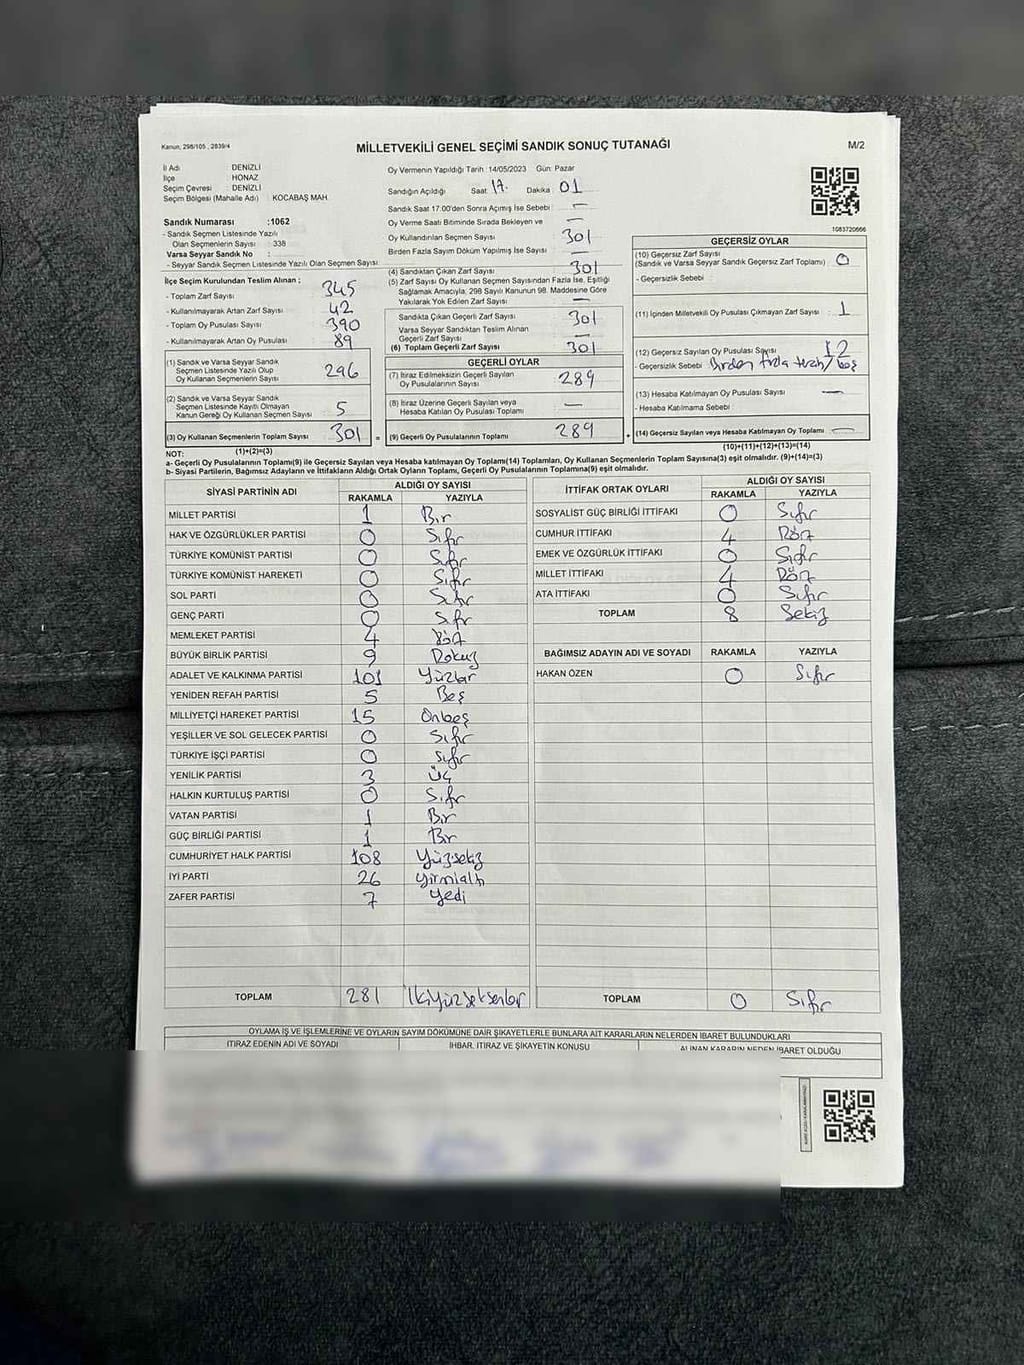 Kanun, 298/105 , 2839/4
MİLLETVEKİLİ GENEL SEÇİMİ SANDIK SONUÇ TUTANAĞI
M/2
İl Adı : DENİZLİ
İlçe : HONAZ
Seçim Çevresi : DENİZLİ
Seçim Bölgesi (Mahalle Adı) : KOCABAŞ MAH.
Sandık Numarası :1062
- Sandık Seçmen Listesinde Yazılı
Olan Seçmenlerin Sayısı : 338
Varsa Seyyar Sandık No :
- Seyyar Sandık Seçmen Listesinde Yazılı Olan Seçmen Sayısı:
İlçe Seçim Kurulundan Teslim Alınan ;
- Toplam Zarf Sayısı : 345
- Kullanılmayarak Artan Zarf Sayısı : 42
- Toplam Oy Pusulası Sayısı : 390
- Kullanılmayarak Artan Oy Pusulası : 89
(1) Sandık ve Varsa Seyyar Sandık
Seçmen Listesinde Yazılı Olup
Oy Kullanan Seçmenlerin Sayısı : 296
(2) Sandık ve Varsa Seyyar Sandık
Seçmen Listesinde Kayıtlı Olmayan
Kanun Gereği Oy Kullanan Seçmen Sayısı : 5
(3) Oy Kullanan Seçmenlerin Toplam Sayısı : 301
(1)+(2)=(3)
Oy Vermenin Yapıldığı Tarih :14/05/2023 Gün: Pazar
Sandığın Açıldığı Saat : 17. Dakika : 01
Sandık Saat 17.00'den Sonra Açımış İse Sebebi : —
Oy Verme Saati Bitiminde Sırada Bekleyen ve —
Oy Kullandırılan Seçmen Sayısı : 301
Birden Fazla Sayım Döküm Yapılmış İse Sayısı : —
(4) Sandıktan Çıkan Zarf Sayısı : 301
(5) Zarf Sayısı Oy Kullanan Seçmen Sayısından Fazla İse, Eşitliği
Sağlamak Amacıyla, 298 Sayılı Kanunun 98. Maddesine Göre
Yakılarak Yok Edilen Zarf Sayısı : —
Sandıkta Çıkan Geçerli Zarf Sayısı : 301
Varsa Seyyar Sandıktan Teslim Alınan
Geçerli Zarf Sayısı : —
(6) Toplam Geçerli Zarf Sayısı : 301
GEÇERLİ OYLAR
(7) İtiraz Edilmeksizin Geçerli Sayılan
Oy Pusulalarının Sayısı : 289
(8) İtiraz Üzerine Geçerli Sayılan veya
Hesaba Katılan Oy Pusulası Toplamı : —
(9) Geçerli Oy Pusulalarının Toplamı : 289
1083720666
GEÇERSİZ OYLAR
(10) Geçersiz Zarf Sayısı
(Sandık ve Varsa Seyyar Sandık Geçersiz Zarf Toplamı) : 0
- Geçersizlik Sebebi :
(11) İçinden Milletvekili Oy Pusulası Çıkmayan Zarf Sayısı : 1
(12) Geçersiz Sayılan Oy Pusulası Sayısı : 12
- Geçersizlik Sebebi : Birden fazla tercih/boş
(13) Hesaba Katılmayan Oy Pusulası Sayısı : —
- Hesaba Katılmama Sebebi :
(14) Geçersiz Sayılan veya Hesaba Katılmayan Oy Toplamı : —
(10)+(11)+(12)+(13)=(14)
NOT:
a- Geçerli Oy Pusulalarının Toplamı(9) ile Geçersiz Sayılan veya Hesaba katılmayan Oy Toplamı(14) Toplamları, Oy Kullanan Seçmenlerin Toplam Sayısına(3) eşit olmalıdır. (9)+(14)=(3)
b- Siyasi Partilerin, Bağımsız Adayların ve İttifakların Aldığı Ortak Oyların Toplamı, Geçerli Oy Pusulalarının Toplamına(9) eşit olmalıdır.
SİYASİ PARTİNİN ADI ALDIĞI OY SAYISI
RAKAMLA YAZIYLA
MİLLET PARTİSİ 1 Bir
HAK VE ÖZGÜRLÜKLER PARTİSİ 0 Sıfır
TÜRKİYE KOMÜNİST PARTİSİ 0 Sıfır
TÜRKİYE KOMÜNİST HAREKETİ 0 Sıfır
SOL PARTİ 0 Sıfır
GENÇ PARTİ 0 Sıfır
MEMLEKET PARTİSİ 4 Dört
BÜYÜK BİRLİK PARTİSİ 9 Dokuz
ADALET VE KALKINMA PARTİSİ 101 Yüzbir
YENİDEN REFAH PARTİSİ 5 Beş
MİLLİYETÇİ HAREKET PARTİSİ 15 Onbeş
YEŞİLLER VE SOL GELECEK PARTİSİ 0 Sıfır
TÜRKİYE İŞÇİ PARTİSİ 0 Sıfır
YENİLİK PARTİSİ 3 Üç
HALKIN KURTULUŞ PARTİSİ 0 Sıfır
VATAN PARTİSİ 1 Bir
GÜÇ BİRLİĞİ PARTİSİ 1 Bir
CUMHURİYET HALK PARTİSİ 108 Yüzsekiz
İYİ PARTİ 26 Yirmialtı
ZAFER PARTİSİ 7 Yedi
TOPLAM 281 İkiyüzseksenbir
İTTİFAK ORTAK OYLARI ALDIĞI OY SAYISI
RAKAMLA YAZIYLA
SOSYALİST GÜÇ BİRLİĞİ İTTİFAKI 0 Sıfır
CUMHUR İTTİFAKI 4 Dört
EMEK VE ÖZGÜRLÜK İTTİFAKI 0 Sıfır
MİLLET İTTİFAKI 4 Dört
ATA İTTİFAKI 0 Sıfır
TOPLAM 8 Sekiz
BAĞIMSIZ ADAYIN ADI VE SOYADI RAKAMLA YAZIYLA
HAKAN ÖZEN 0 Sıfır
TOPLAM 0 Sıfır
OYLAMA İŞ VE İŞLEMLERİNE VE OYLARIN SAYIM DÖKÜMÜNE DAİR ŞİKAYETLERLE BUNLARA AİT KARARLARIN NELERDEN İBARET BULUNDUKLARI
İTİRAZ EDENİN ADI VE SOYADI İHBAR, İTİRAZ VE ŞİKAYETİN KONUSU ALINAN KARARIN NEDEN İBARET OLDUĞU